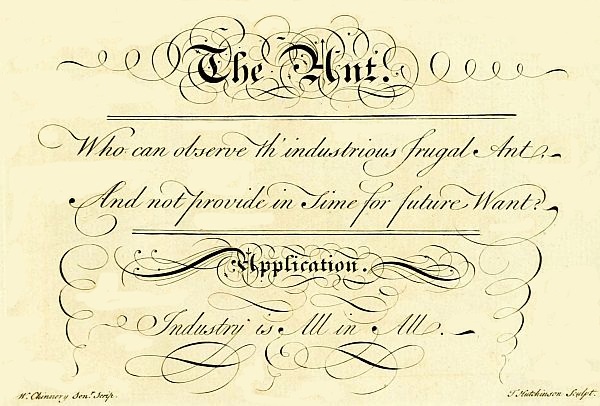 The Ant.
Who can observe th' industrious frugal Ant,
And not provide in Time for future Want?
Application.
Industry is All in All.
Wm. Chinnery Senr. Scrip.
T. Hutchinson Sculpt.